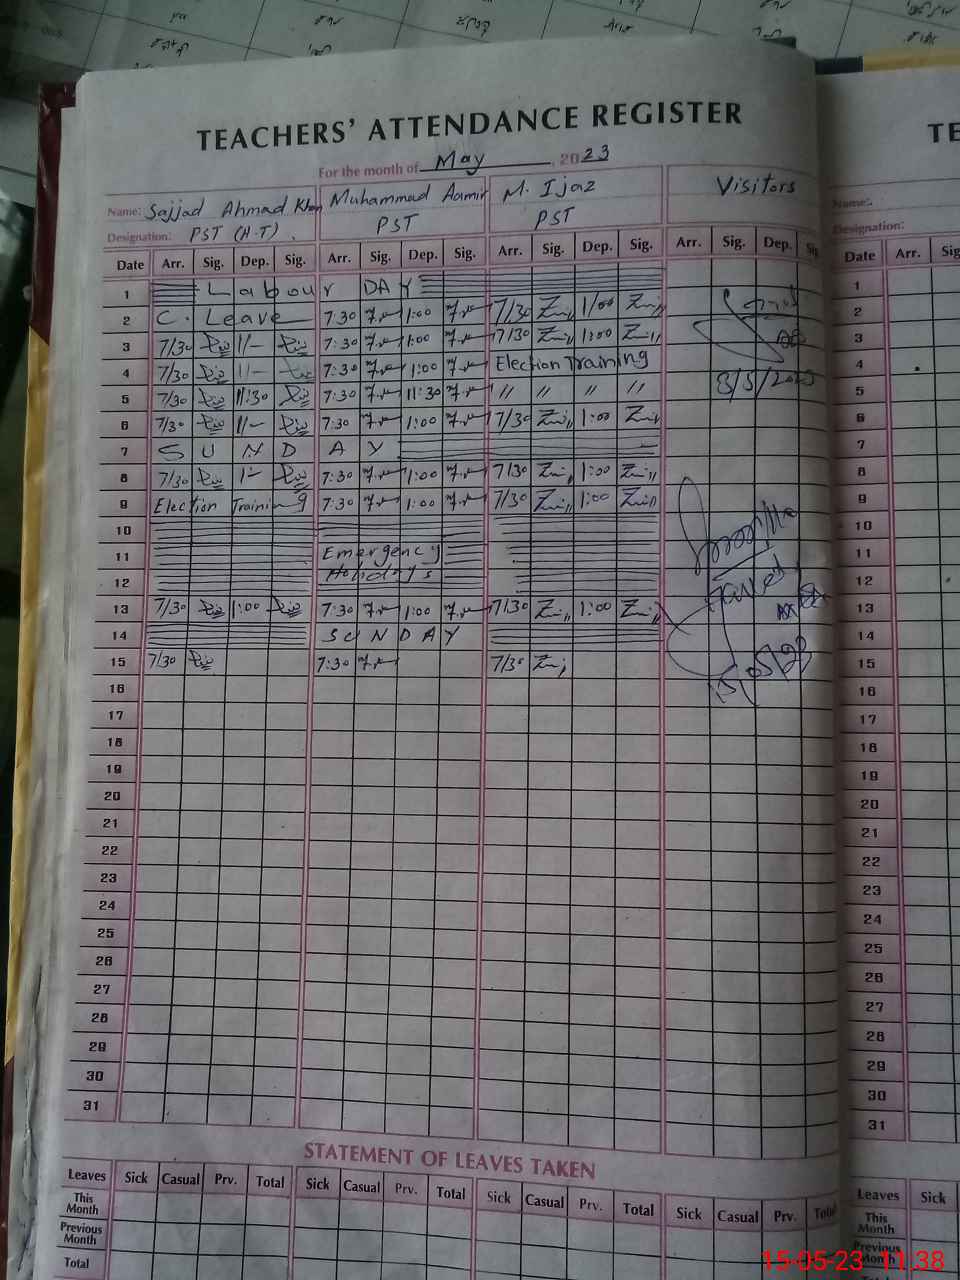 TEACHERS' ATTENDANCE REGISTER
For the month of May, 2023
Name: Sajjad Ahmad Khan Muhammad Aamir M. Ijaz Visitors
Designation: PST (H.T) PST PST
Date Arr. Sig. Dep. Sig. Arr. Sig. Dep. Sig. Arr. Sig. Dep. Sig. Arr. Sig. Dep. Sig.
1 Labour DAY
2 C. Leave 7:30 1:00 7/30 1/00
3 7/30 1/- 7:30 1:00 7/30 1:00
4 7/30 1/- 7:30 1:00 Election Training
5 7/30 11:30 7:30 11:30 // // // // 8/5/2023
6 7/30 1/- 7:30 1:00 7/30 1:00
7 SUNDAY
8 7/30 1- 7:30 1:00 7/30 1:00
9 Election Training 7:30 1:00 7/30 1:00
10
11 Emergency
12 Holidays
13 7/30 1:00 7:30 1:00 7/30 1:00
14 SUNDAY
15 7/30 7:30 7/30 15/05/23
16
17
18
19
20
21
22
23
24
25
26
27
28
29
30
31
STATEMENT OF LEAVES TAKEN
Leaves Sick Casual Prv. Total Sick Casual Prv. Total Sick Casual Prv. Total Sick Casual Prv. Total
This Month
Previous Month
Total
TE
Name:
Designation:
Date Arr.
1
2
3
4
5
6
7
8
9
10
11
12
13
14
15
16
17
18
19
20
21
22
23
24
25
26
27
28
29
30
31
Leaves Sick
This Month
Previous Month
Total
15-05-23 11:38